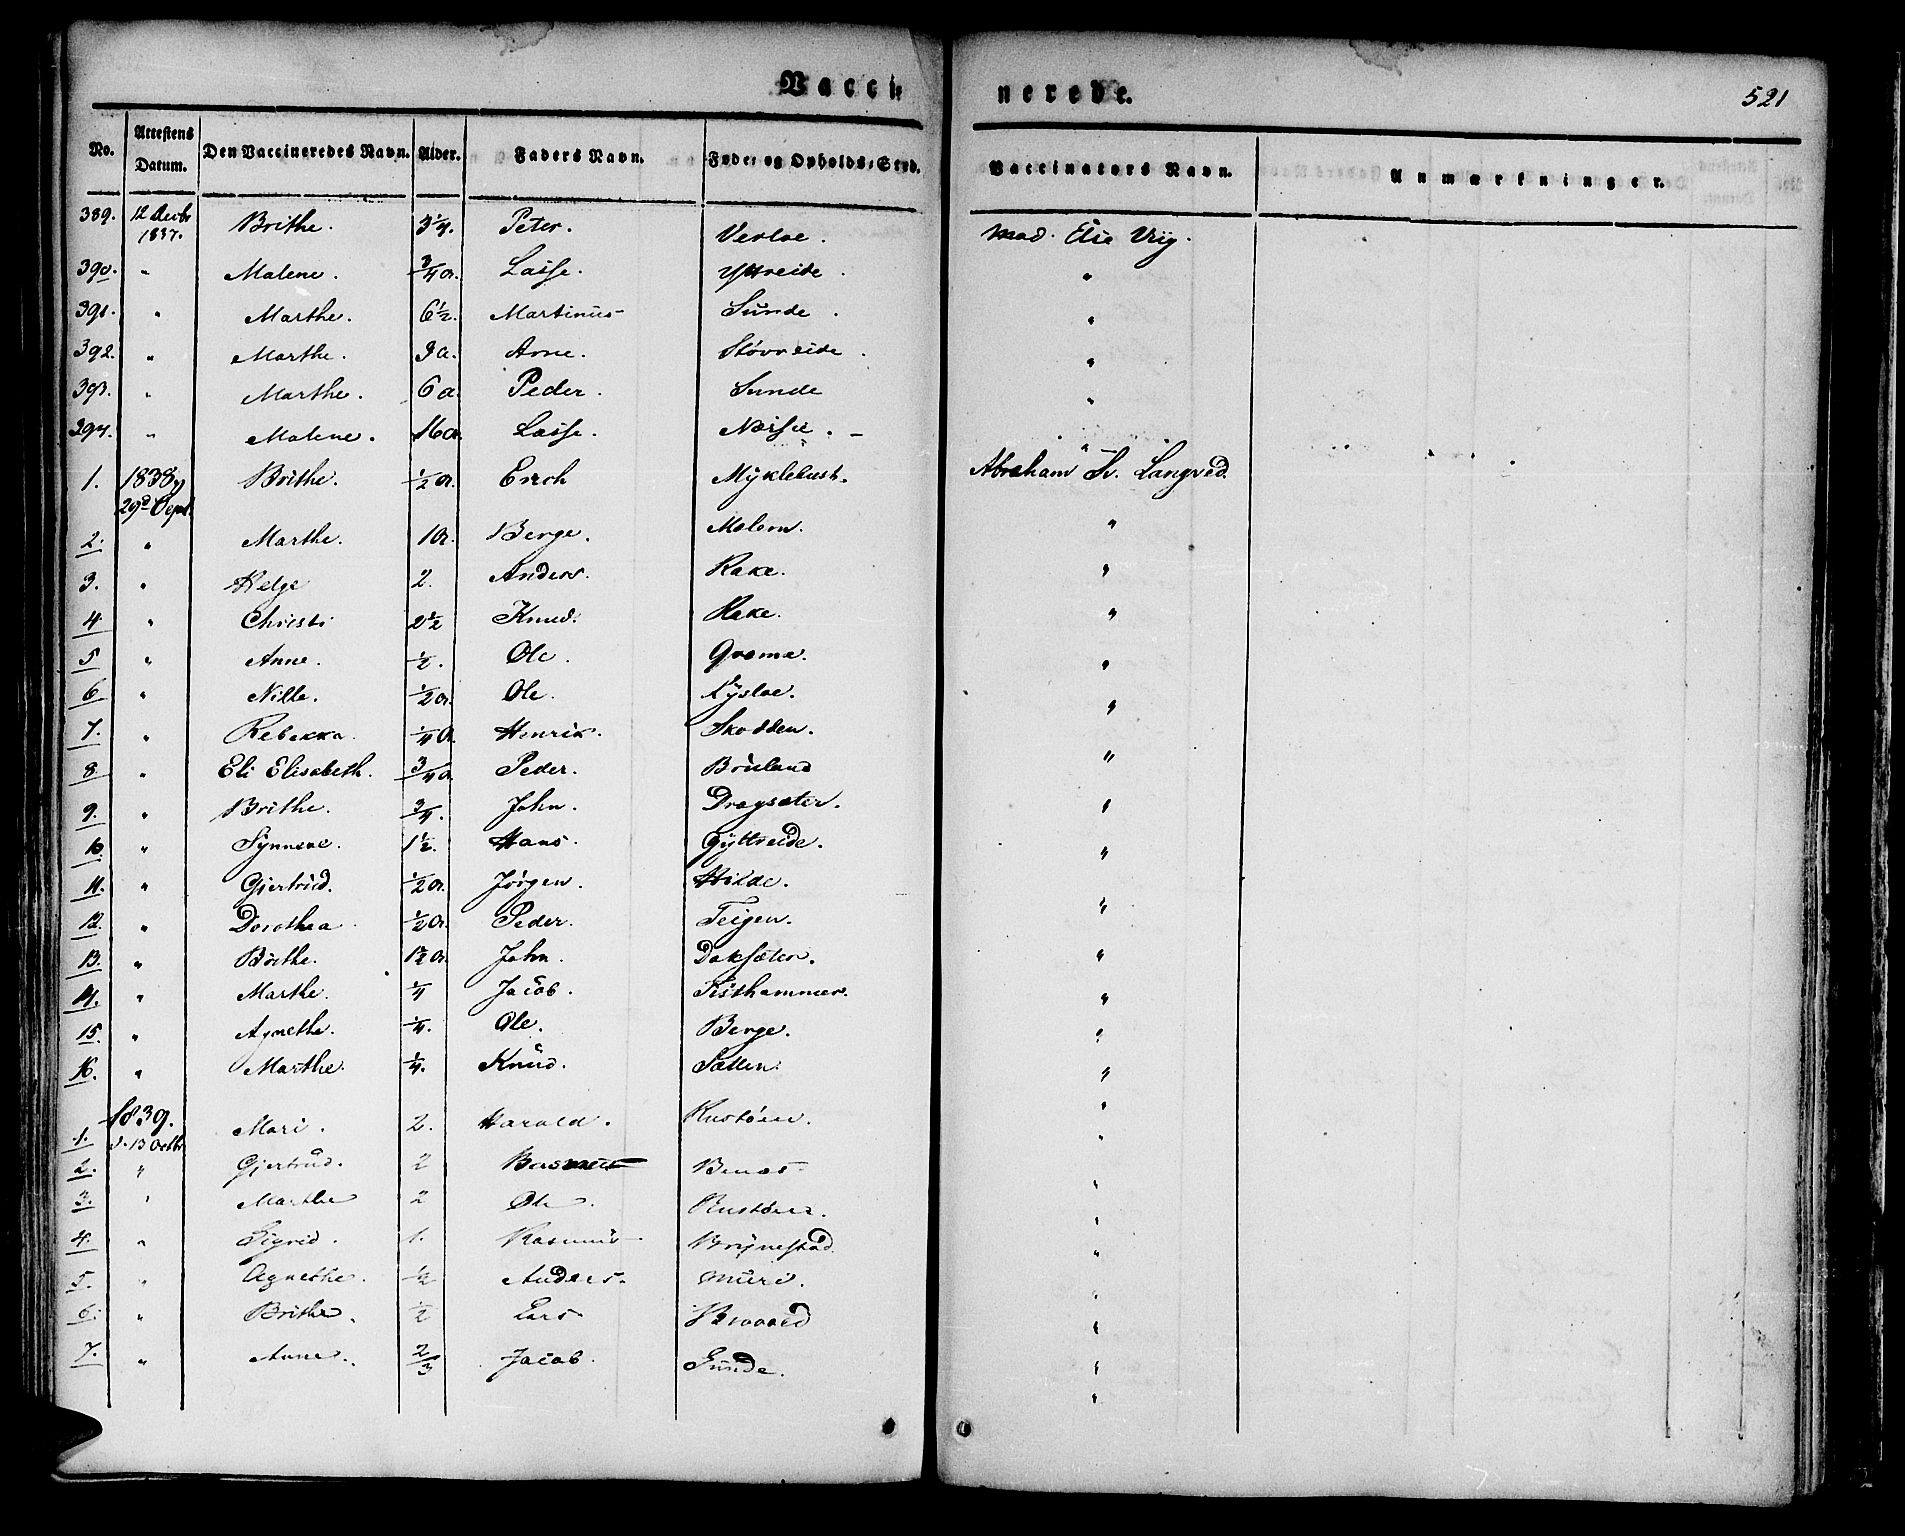 Vacci- nerede. 521
No. Attestens Datum. Den Vaccineredes Navn. Alder. Faders Navn. Føde- og Opholds-Sted. Vaccinators Navn. Anmærkninger.
389. 12 Decbr 1837. Brithe. 3 1/4. Peter. Verloe. Mad. Elie Vrig.
390. " Malene. 3/4 a. Lasse. Yttreide. "
391. " Marthe. 6 1/2. Martinus Sunde. "
392. " Marthe. 3 a. Arne. Støvreide. "
393. " Marthe. 6 a. Peder. Sunde "
294. " Malene. 16 a. Lasse. "
1. 1838 29d Sept. Brithe. 1/2 a. Erich Myklebust. Abraham Langved.
2. " Marthe. 1 a. Berge. "
3. " Helge 2. Anders. Rake. "
4. " Christi 2 1/2 Knud. Rake. "
5 " Anne. 1/2. Ole. Grome. "
6 " Nille. 1/2 a. Ole. "
7. " Rebekka. 1/4 a. Henrik. Skodden. "
8 " Eli Elisabeth. 3/4 a. Peder. Bruland "
9. " Brithe. 3/4. John. Dragsæter. "
10. " Synneve. 1 1/2. Hans. Gyttreide. "
11. " Gjertrud. 1/2 a. Jørgen. Hilde. "
12. " Dorothea 1/2 a. Peder. Teigen. "
13. " Brithe. 1 1/2 a. John. "
14. " Marthe. 1/4 Jacob. "
15. " Agnethe. 1/4. Ole. Berge. "
16. " Marthe. 1/4. Knud. "
1. 1839. d. 13 Octbr Mari. 2. Harald. Rustøen. "
2. " Gjertrud. 2 Rasmus Benæs "
3. " Marthe 2 Ole. Rustøen. "
4. " Sigrid. 1. Rasmus Brynestad. "
5. " Agnethe. 1/2 Anders. Muri. "
6. " Brithe. 1/2 Lars "
7. " Anne. 2/3 Jacob. Sunde. "